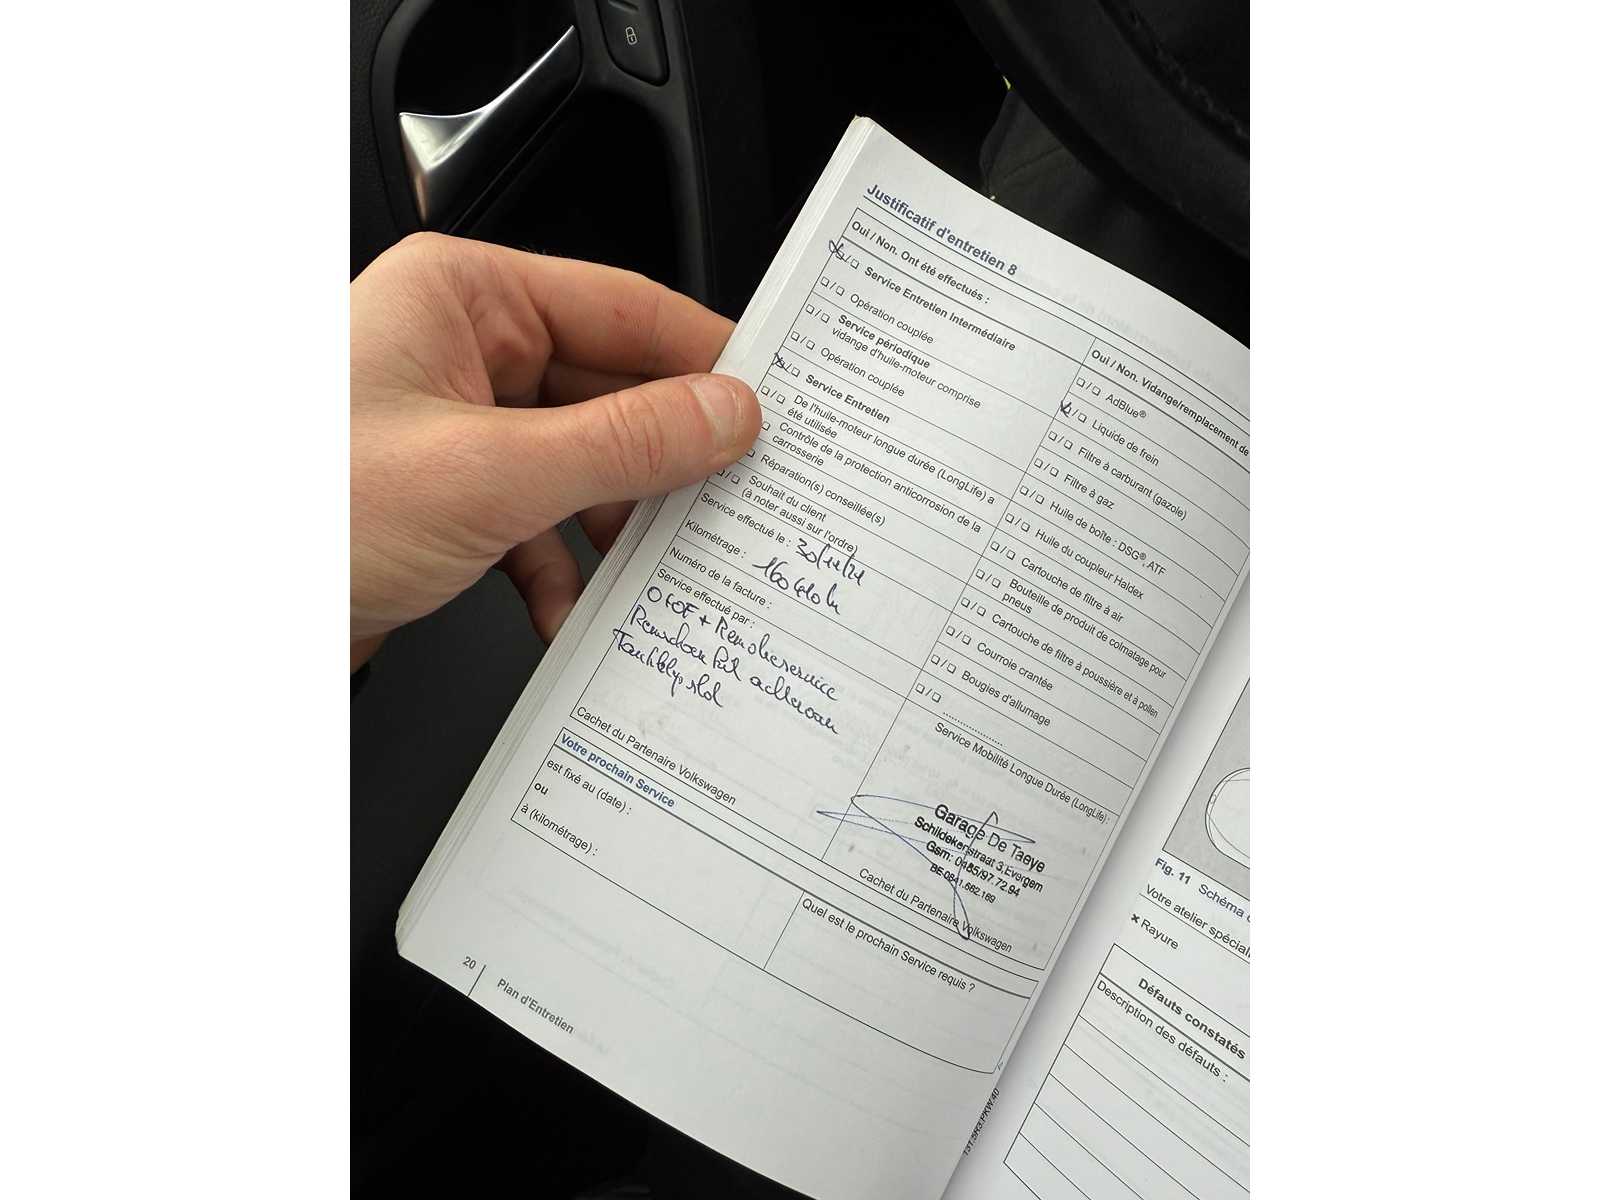 Justificatif d'entretien 8
Oui / Non. Ont été effectués :
Service Entretien Intermédiaire
Opération couplée
Service périodique
vidange d'huile-moteur comprise
Opération couplée
Service Entretien
De l'huile-moteur longue durée (LongLife) a
été utilisée
Contrôle de la protection anticorrosion de la
carrosserie
Réparation(s) conseillée(s)
Souhait du client
(à noter aussi sur l'ordre)
Service effectué le :
Kilométrage :
Numéro de la facture :
Service effectué par :
Cachet du Partenaire Volkswagen
Oui / Non. Vidange/remplacement de
AdBlue®
Liquide de frein
Filtre à carburant (gazole)
Filtre à gaz
Huile de boîte : DSG®, ATF
Huile du coupleur Haldex
Cartouche de filtre à air
Bouteille de produit de colmatage pour
pneus
Cartouche de filtre à poussière et à pollen
Courroie crantée
Bougies d'allumage
Service Mobilité Longue Durée (LongLife) :
Garage De Taeye
Schildekenstraat 3, Evergem
Gsm: 0485/97.72.94
BE 0841.662.169
Cachet du Partenaire Volkswagen
Votre prochain Service
est fixé au (date) :
ou
à (kilométrage) :
Quel est le prochain Service requis ?
20
Plan d'Entretien
131.5R3.PKW.40
Fig. 11 Schéma
Votre atelier
Rayure
Défauts constatés
Description des défauts :